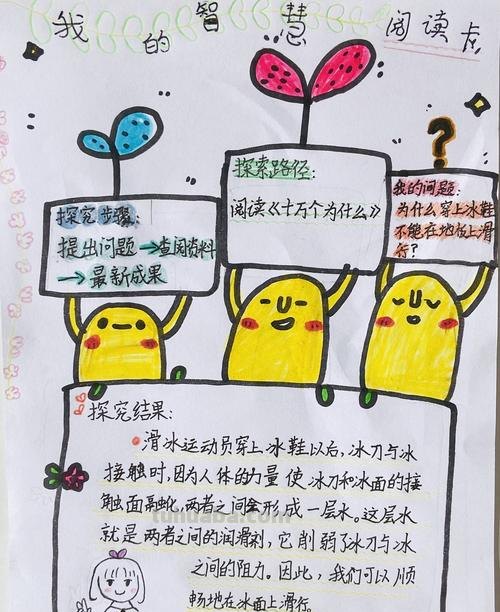 我的智慧阅读卡
探究步骤:
提出问题→查阅资料
→最新成果
探索路径:
阅读《十万个为什么》
?
我的问题:
为什么穿上冰鞋
不能在地板上滑
行?
探究结果:
滑冰运动员穿上冰鞋以后，冰刀与冰
接触时，因为人体的力量使冰刀和冰面的接
触面融化，两者之间会形成一层水。这层水
就是两者之间的润滑剂，它削弱了冰刀与冰
之间的阻力。因此，我们可以顺
畅地在冰面上滑行
tundaba.com